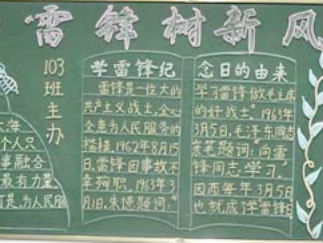 雷锋树新风
103
班主办
学雷锋纪
念日的由来
雷锋是一位大的
共产主义战士,全心
全意为人民服务的
楷模,1962年8月15
日,雷锋因事故不
幸殉职,1963年3
月1日,朱德题词:
学习雷锋做毛主席
的好战士"1963年
3月5日,毛泽东同志
亲笔题词:"向雷
锋同志学习"。
因而每年3月5日
也就成了学雷锋
大海
个人只
事融合
最有力量
为人民服